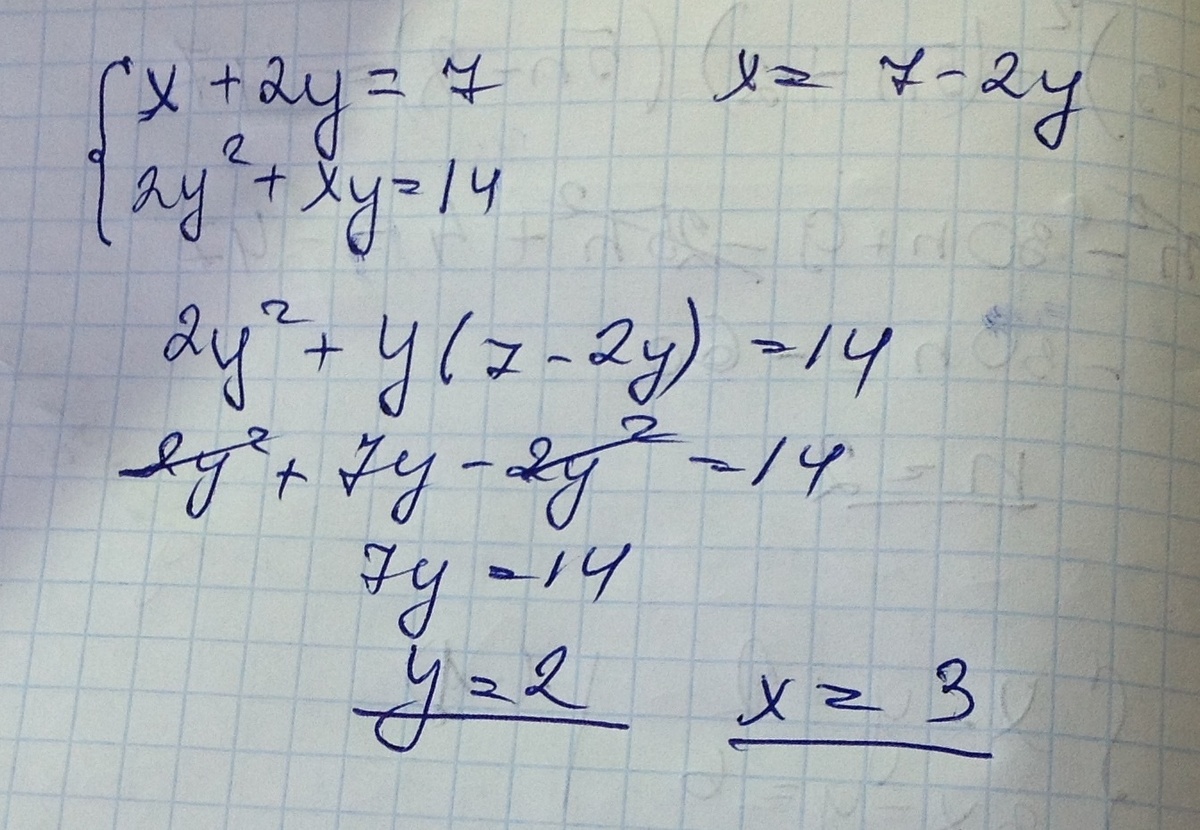 x + 2y = 7 x = 7 - 2y
2y² + xy = 14
2y² + y(7 - 2y) = 14
2y² + 7y - 2y² = 14
7y = 14
y = 2 x = 3